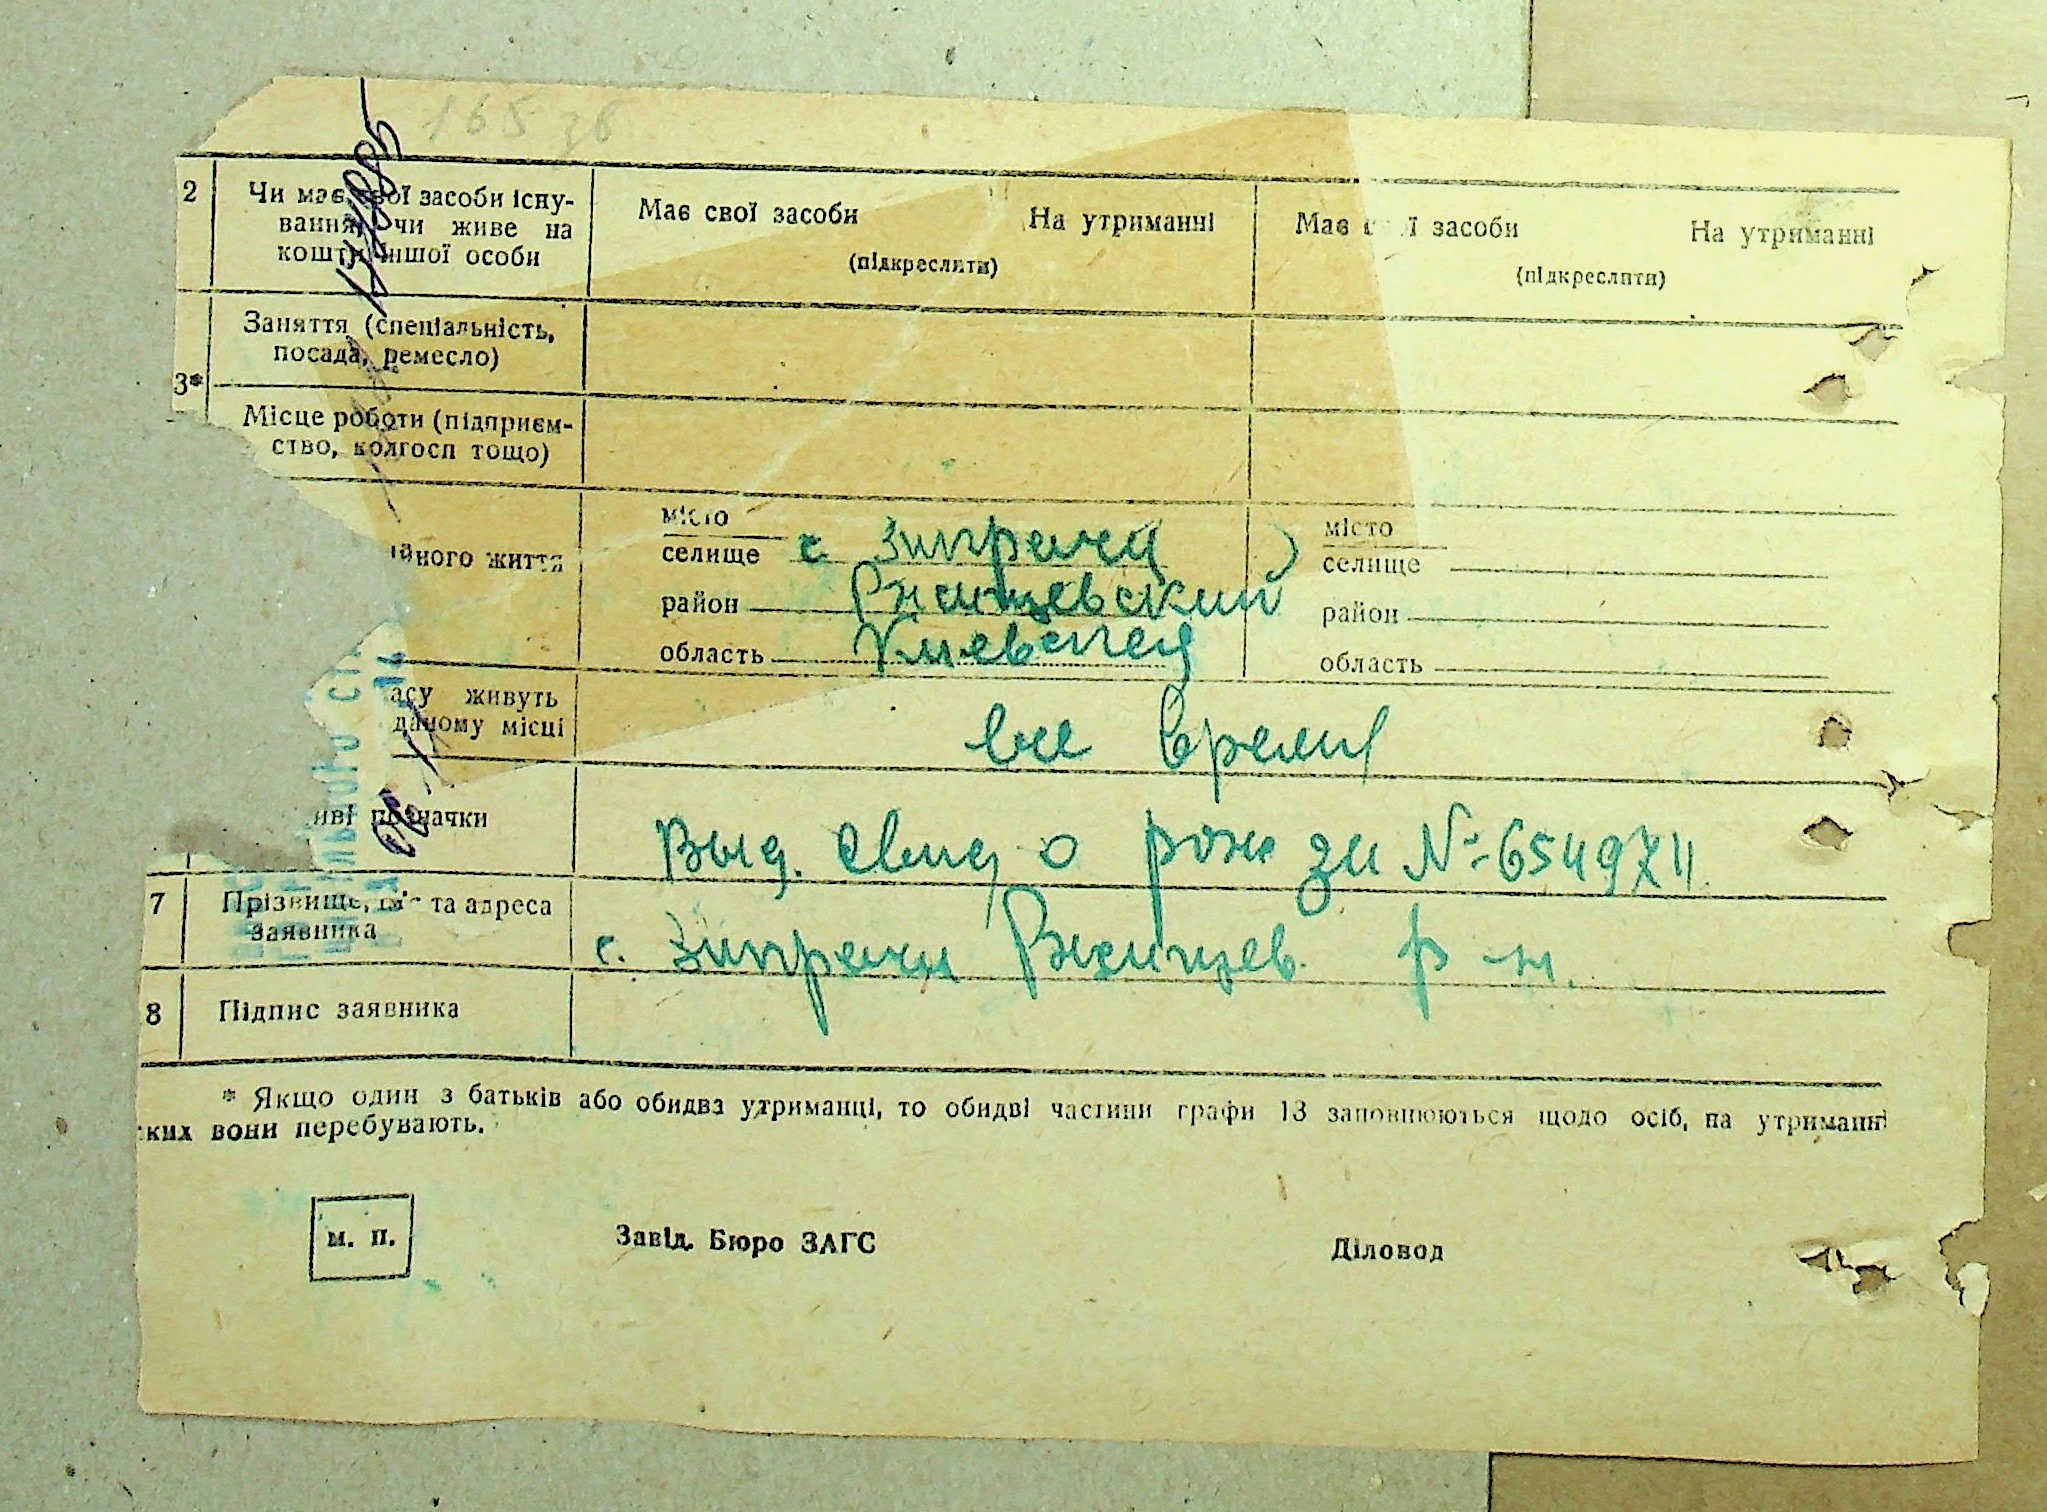 165 зв
2 Чи має свої засоби існу- Має свої засоби На утриманні Має свої засоби На утриманні
вання, чи живе на (підкреслити) (підкреслити)
кошти іншої особи
Заняття (спеціальність,
посада, ремесло)
3*
Місце роботи (підприєм-
ство, колгосп тощо)
місто місто
йного життя селище с. Зикрачи селище
район Ржищевский район
область Киевская область
асу живуть
даному місці все время
иві позначки Выд. свид о рож за №
7 Прізвище, ім'я та адреса
заявника с. Зикрачи Ржищев. р-н.
8 Підпис заявника
* Якщо один з батьків або обидва утриманці, то обидві частини графи 13 заповнюються щодо осіб, на утриманні
яких вони перебувають.
м. п. Завід. Бюро ЗАГС Діловод